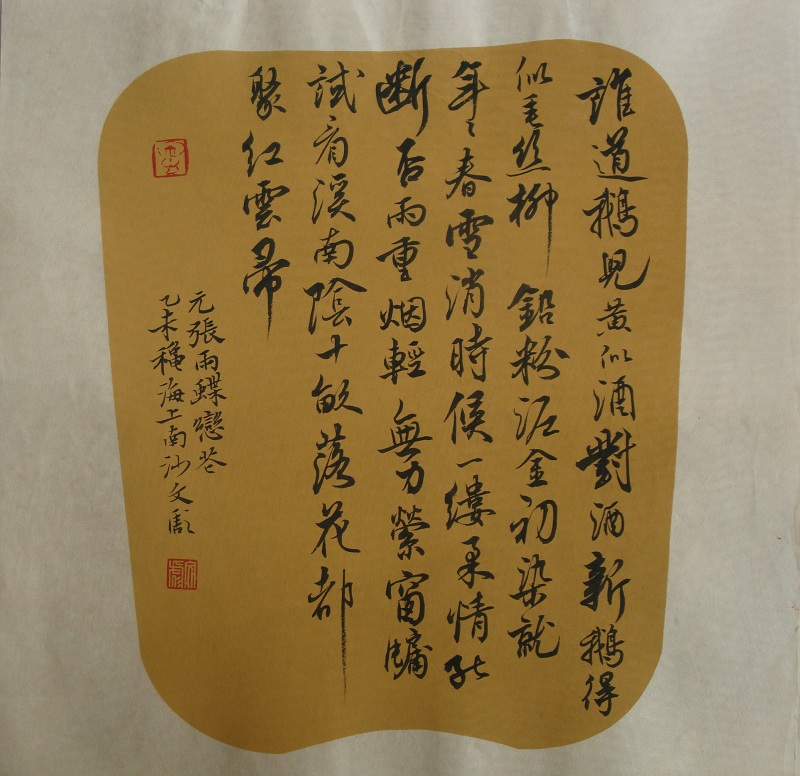 誰道鵝兒黄似酒對酒新鵝得
似垂絲柳 鉛粉泥金初染就
年々春雪消時候一縷柔情能
斷否雨重烟輕無力縈窗牖
試看溪南陰十畝落花都
聚紅雲帚
元張雨蝶戀花
乙未穐海上南沙文